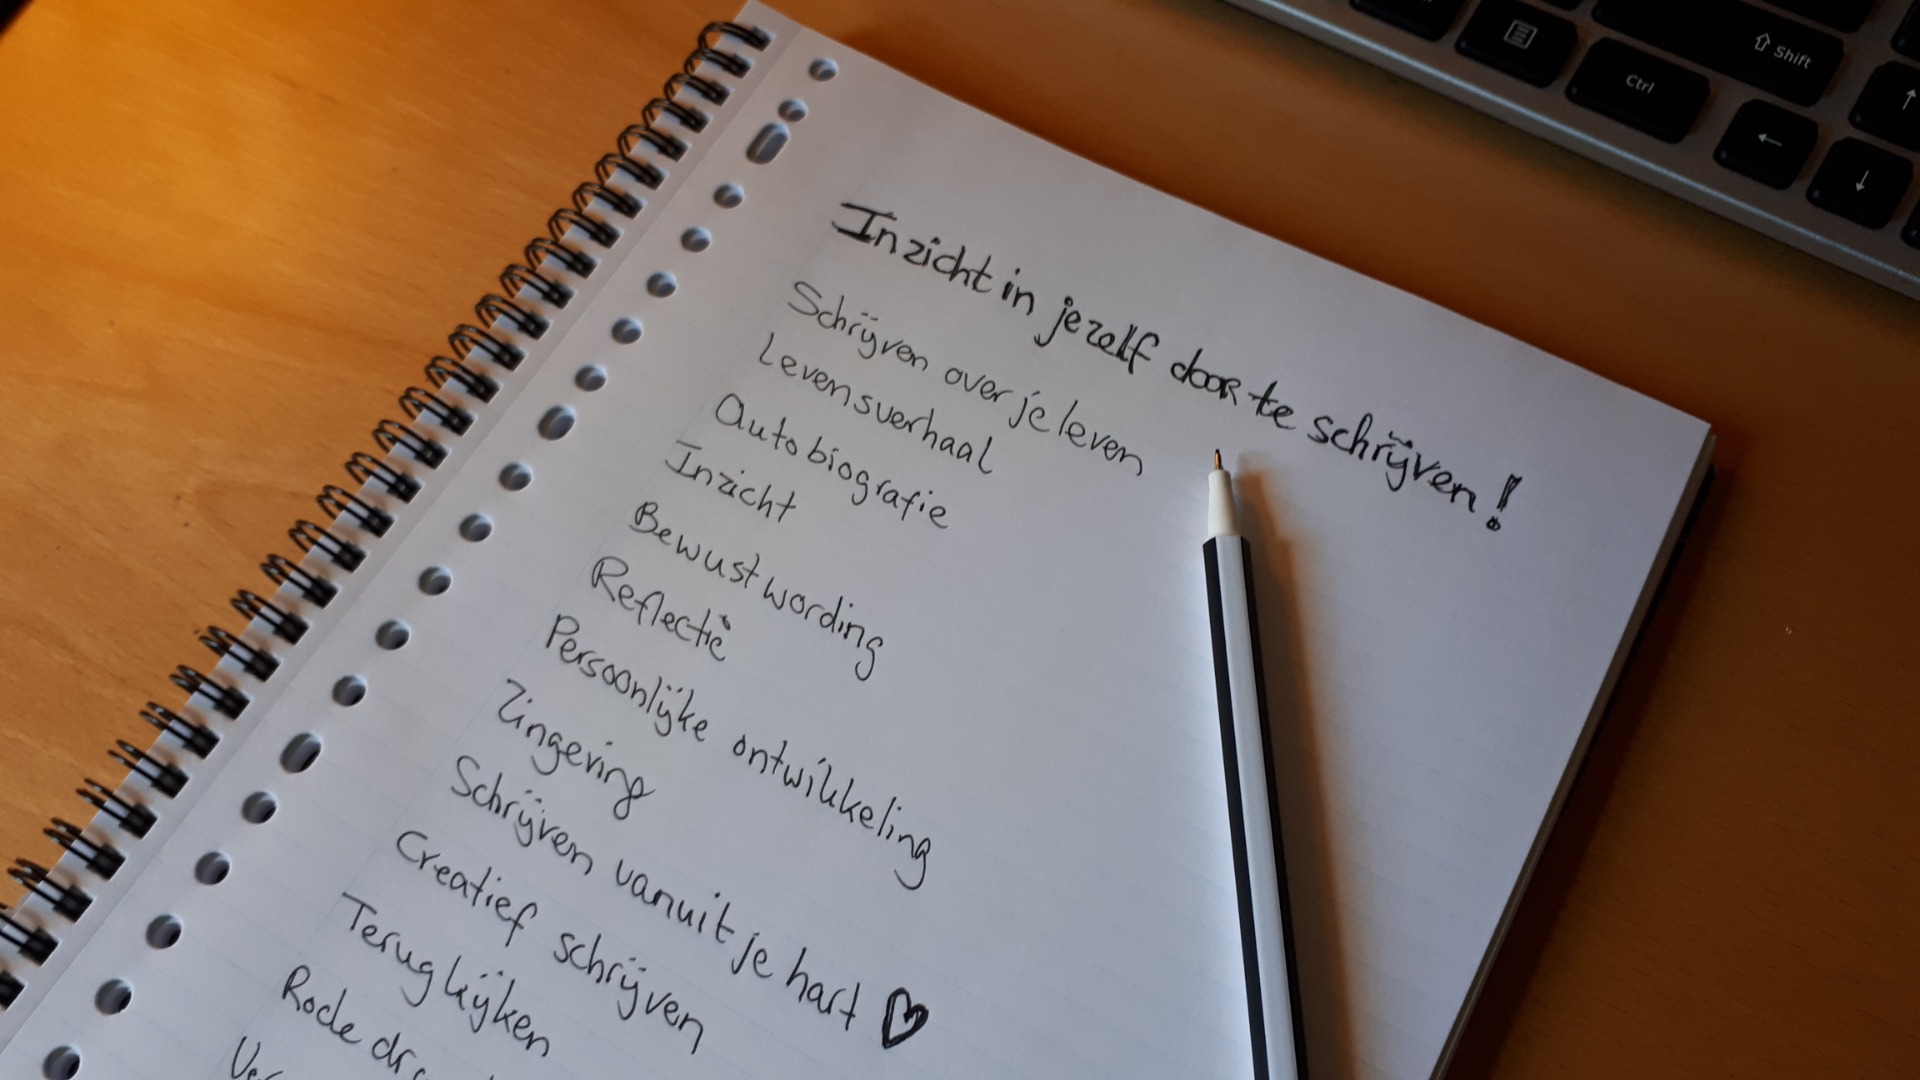 Inzicht in jezelf door te schrijven!
Schrijven over je leven
Levensverhaal
Autobiografie
Inzicht
Bewustwording
Reflectie
Persoonlijke ontwikkeling
Zingeving
Schrijven vanuit je hart
Creatief schrijven
Terugkijken
Rode
Shift
Ctrl